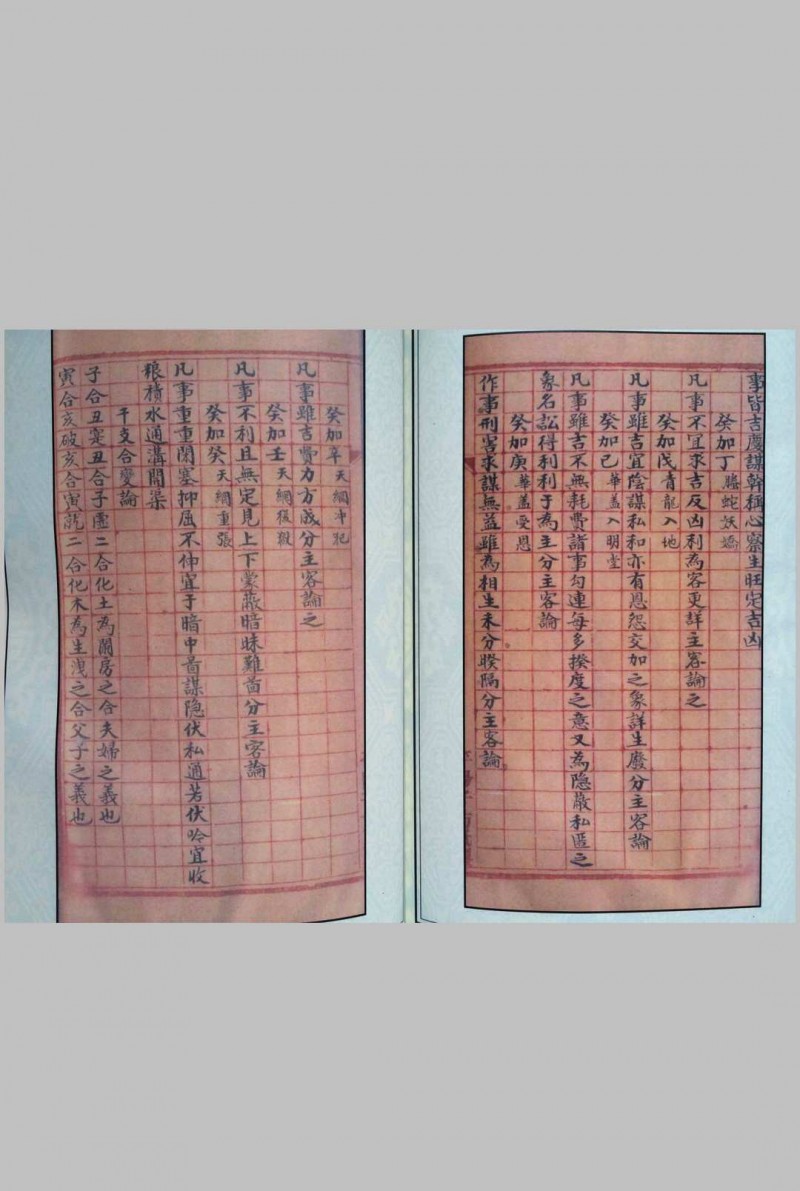 事皆吉慶謀幹稱心察生旺定吉凶
癸加丁 螣蛇妖嬌
凡事不宜求吉反凶利為客更詳主客論之
癸加戊 青龍入地
凡事雖吉宜陰謀私和亦有恩怨交加之象詳生廢分主客論
癸加己 華盖入明堂
凡事雖吉不無耗費諸事勾連每多揆度之意又為隐蔽私匿之
象名訟得利利于為主分主客論
癸加庚 華盖受恩
作事刑害求謀無益雖為相生未分暌隔分主客論
癸加辛 天網冲犯
凡事雖吉費力方成分主客論之
癸加壬 天網
凡事不利且無定見上下蒙蔽暗昧難啚分主客論
癸加癸 天網重張
凡事重重閉塞抑屈不伸宜于暗中啚謀隐伏私通若伏吟宜收
粮積水通溝開渠
干支合變論
子合丑寔丑合子虛二合化土為閨房之合夫婦之義也
寅合亥破亥合寅就二合化木為生洩之合父子之義也